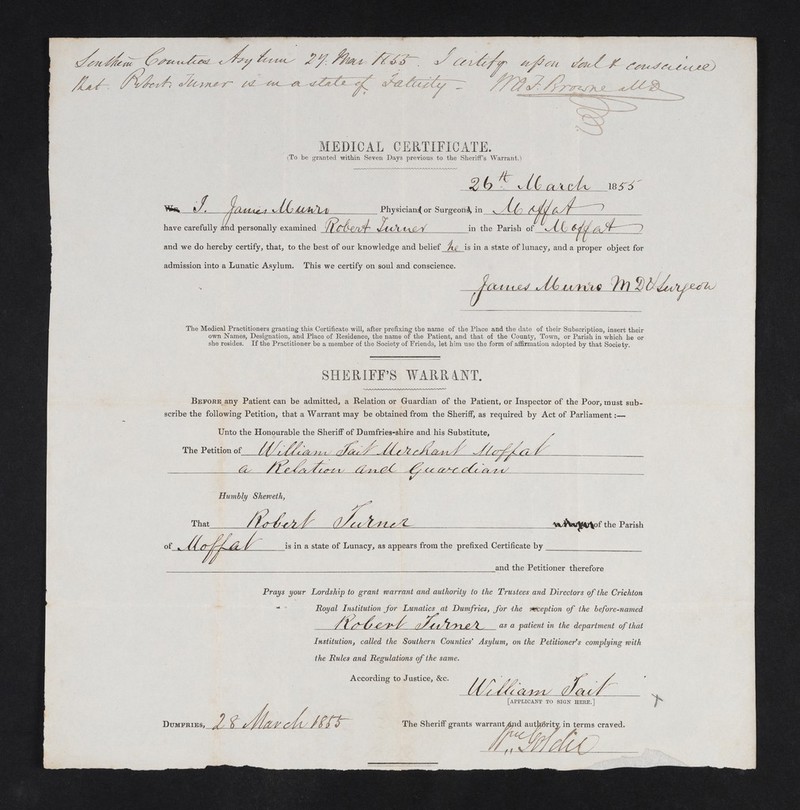 Southern Counties Asylum 27 Mar 1855. I certify upon soul & conscience
that Robert Turner is in a state of Fatuity - W A F Browne MD
MEDICAL CERTIFICATE.
(To be granted within Seven Days previous to the Sheriff's Warrant.)
26th March 1855
We, I, James Munro Physician or Surgeon, in Moffat
have carefully and personally examined Robert Turner in the Parish of Moffat
and we do hereby certify, that, to the best of our knowledge and belief he is in a state of lunacy, and a proper object for
admission into a Lunatic Asylum. This we certify on soul and conscience.
James Munro MD & Surgeon
The Medical Practitioners granting this Certificate will, after prefixing the name of the Place and the date of their Subscription, insert their
own Names, Designation, and Place of Residence, the name of the Patient, and that of the County, Town, or Parish in which he or
she resides. If the Practitioner be a member of the Society of Friends, let him use the form of affirmation adopted by that Society.
SHERIFF'S WARRANT.
BEFORE any Patient can be admitted, a Relation or Guardian of the Patient, or Inspector of the Poor, must sub-
scribe the following Petition, that a Warrant may be obtained from the Sheriff, as required by Act of Parliament :—
Unto the Honourable the Sheriff of Dumfries-shire and his Substitute,
The Petition of William Tait Merchant Moffat
a Relation and Guardian
Humbly Sheweth,
That Robert Turner of the Parish
of Moffat is in a state of Lunacy, as appears from the prefixed Certificate by
and the Petitioner therefore
Prays your Lordship to grant warrant and authority to the Trustees and Directors of the Crichton
Royal Institution for Lunatics at Dumfries, for the reception of the before-named
Robert Turner as a patient in the department of that
Institution, called the Southern Counties' Asylum, on the Petitioner's complying with
the Rules and Regulations of the same.
According to Justice, &c.
William Tait
[APPLICANT TO SIGN HERE.]
DUMFRIES, 28 March 1855 The Sheriff grants warrant and authority in terms craved.
Wm Goldie